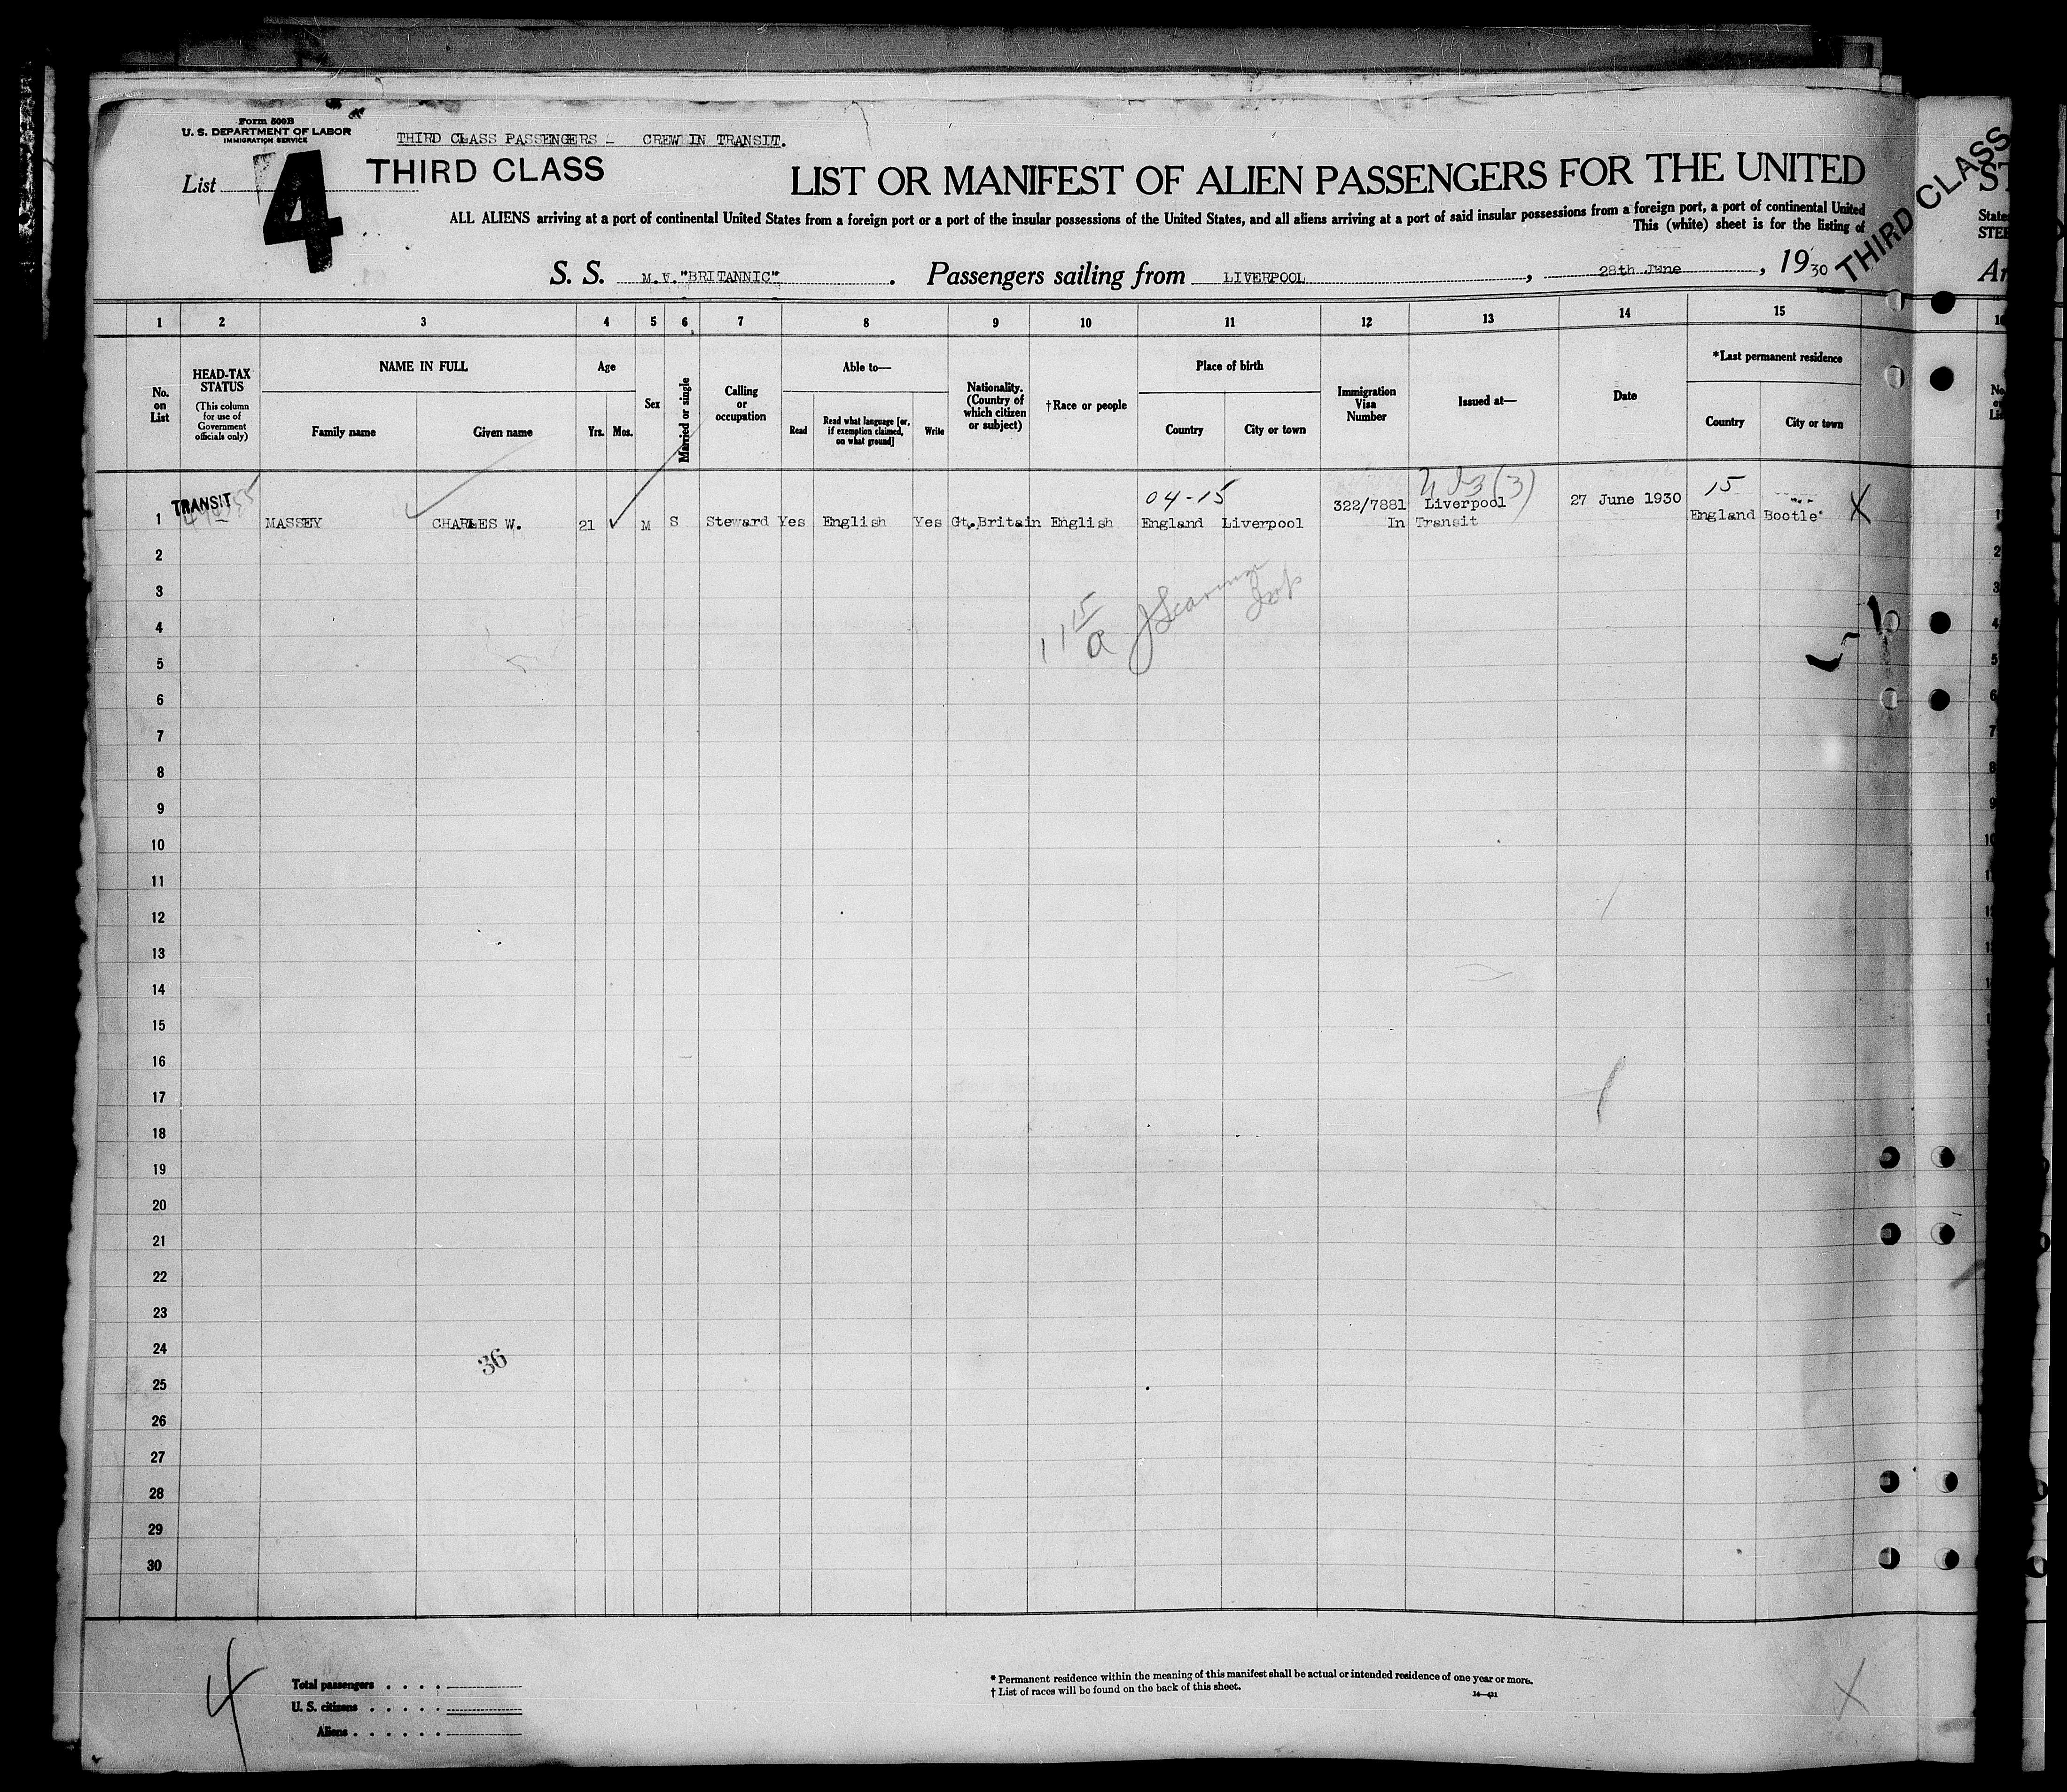 Form 500B
U. S. DEPARTMENT OF LABOR
IMMIGRATION SERVICE
THIRD CLASS PASSENGERS - CREW IN TRANSIT.
List 4 THIRD CLASS
LIST OR MANIFEST OF ALIEN PASSENGERS FOR THE UNITED
THIRD CLASS
ALL ALIENS arriving at a port of continental United States from a foreign port or a port of the insular possessions of the United States, and all aliens arriving at a port of said insular possessions from a foreign port, a port of continental United
This (white) sheet is for the listing of
S. S. M.V. "BRITANNIC" . Passengers sailing from LIVERPOOL , 28th June , 1930
1 2 3 4 5 6 7 8 9 10 11 12 13 14 15
No. on List
HEAD-TAX STATUS
(This column for use of Government officials only)
NAME IN FULL
Family name Given name
Age
Yrs. Mos.
Sex
Married or single
Calling or occupation
Able to—
Read
Read what language [or, if exemption claimed, on what ground]
Write
Nationality. (Country of which citizen or subject)
†Race or people
Place of birth
Country City or town
Immigration Visa Number
Issued at—
Date
*Last permanent residence
Country City or town
TRANSIT 04-15 322/7881 Liverpool 27 June 1930 15
1 MASSEY CHARLES W. 21 M S Steward Yes English Yes Gt.Britain English England Liverpool In Transit England Bootle X
2
3
4
5
6
7
8
9
10
11
12
13
14
15
16
17
18
19
20
21
22
23
24
36
25
26
27
28
29
30
4
Total passengers . . . .
U. S. citizens . . . . .
Aliens . . . . . .
* Permanent residence within the meaning of this manifest shall be actual or intended residence of one year or more.
† List of races will be found on the back of this sheet.
X